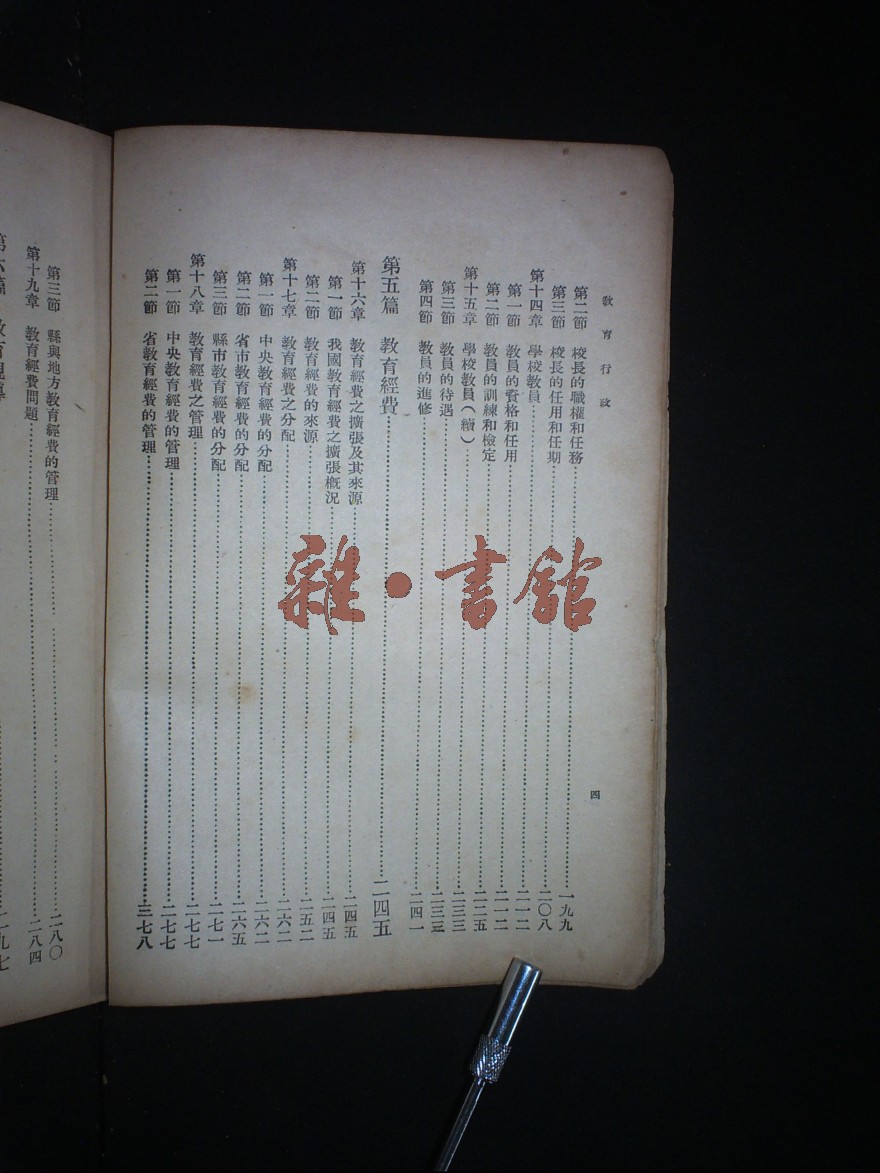 教育行政
四
第二節 校長的職權和任務……一九九
第三節 校長的任用和任期……二〇八
第十四章 學校教員……二〇八
第一節 教員的資格和任用……二一二
第二節 教員的訓練和檢定……二二五
第十五章 學校教員（續）……二三三
第三節 教員的待遇……二三三
第四節 教員的進修……二四一
第五篇 教育經費……二四五
第十六章 教育經費之擴張及其來源……二四五
第一節 我國教育經費之擴張概況……二四五
第二節 教育經費的來源……二五二
第十七章 教育經費之分配……二六二
第一節 中央教育經費的分配……二六二
第二節 省市教育經費的分配……二六五
第三節 縣市教育經費的分配……二七一
第十八章 教育經費之管理……二七七
第一節 中央教育經費的管理……二七七
第二節 省教育經費的管理……三七八
第三節 縣與地方教育經費的管理……二八〇
第十九章 教育經費問題……二八四
雜·書館